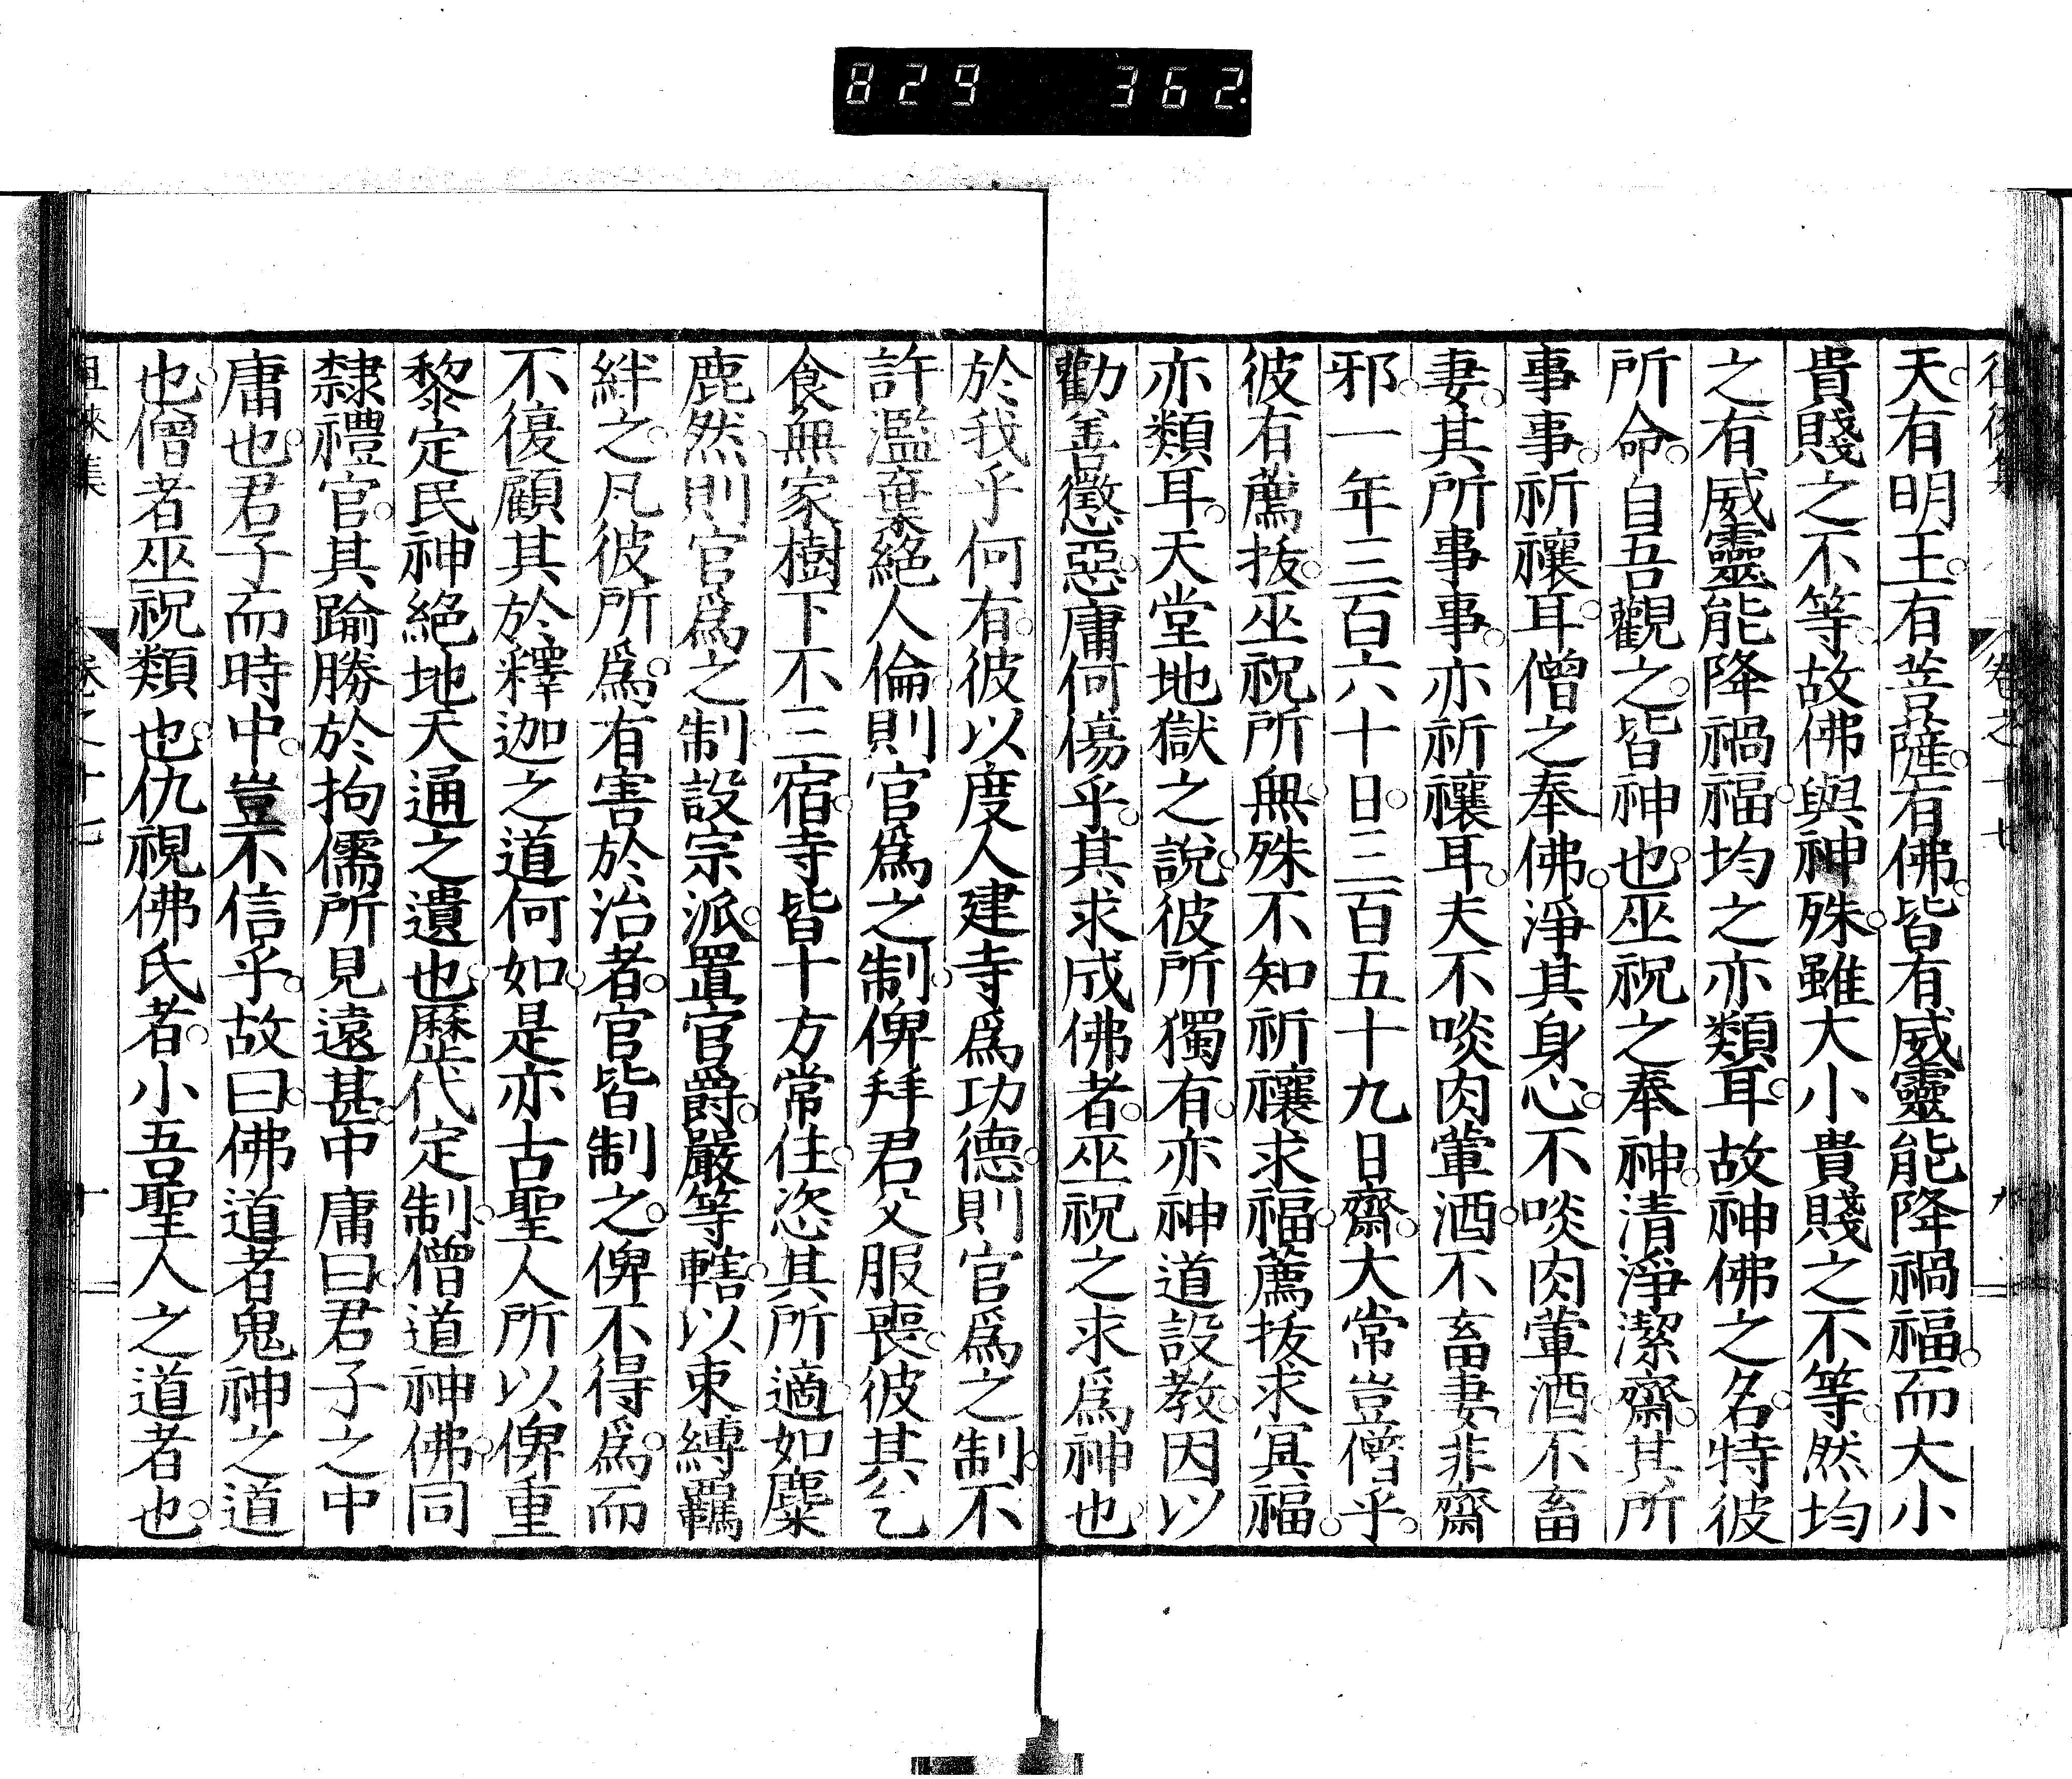 829 362.
天有明王有菩薩有佛皆有威靈能降禍福而大小
貴賤之不等故佛與神殊雖大小貴賤之不等然均
之有威靈能降禍福均之亦類耳故神佛之名特彼
所命自吾觀之皆神也巫祝之奉神清淨潔齋其所
事事祈禳耳僧之奉佛淨其身心不啖肉葷酒不畜
妻其所事事亦祈禳耳夫不啖肉葷酒不畜妻非齋
邪一年三百六十日三百五十九日齋大常豈僧乎
彼有薦拔巫祝所無殊不知祈禳求福薦拔求冥福
亦類耳天堂地獄之說彼所獨有亦神道設教因以
勸善懲惡庸何傷乎其求成佛者巫祝之求爲神也
於我乎何有彼以度人建寺爲功德則官爲之制不
許濫棄絕人倫則官爲之制俾拜君父服喪彼其乞
食無家樹下不三宿寺皆十方常住恣其所適如麋
鹿然則官爲之制設宗派置官爵嚴等轄以束縛羈
絆之凡彼所爲有害於治者官皆制之俾不得爲而
不復顧其於釋迦之道何如是亦古聖人所以俾重
黎定民神絕地天通之遺也歷代定制僧道神佛同
隸禮官其踰勝於拘儒所見遠甚中庸曰君子之中
庸也君子而時中豈不信乎故曰佛道者鬼神之道
也僧者巫祝類也仇視佛氏者小吾聖人之道者也
徂徠集 卷之十七 十